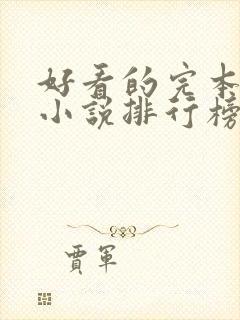 好看的完本
小說排行榜
賈軍